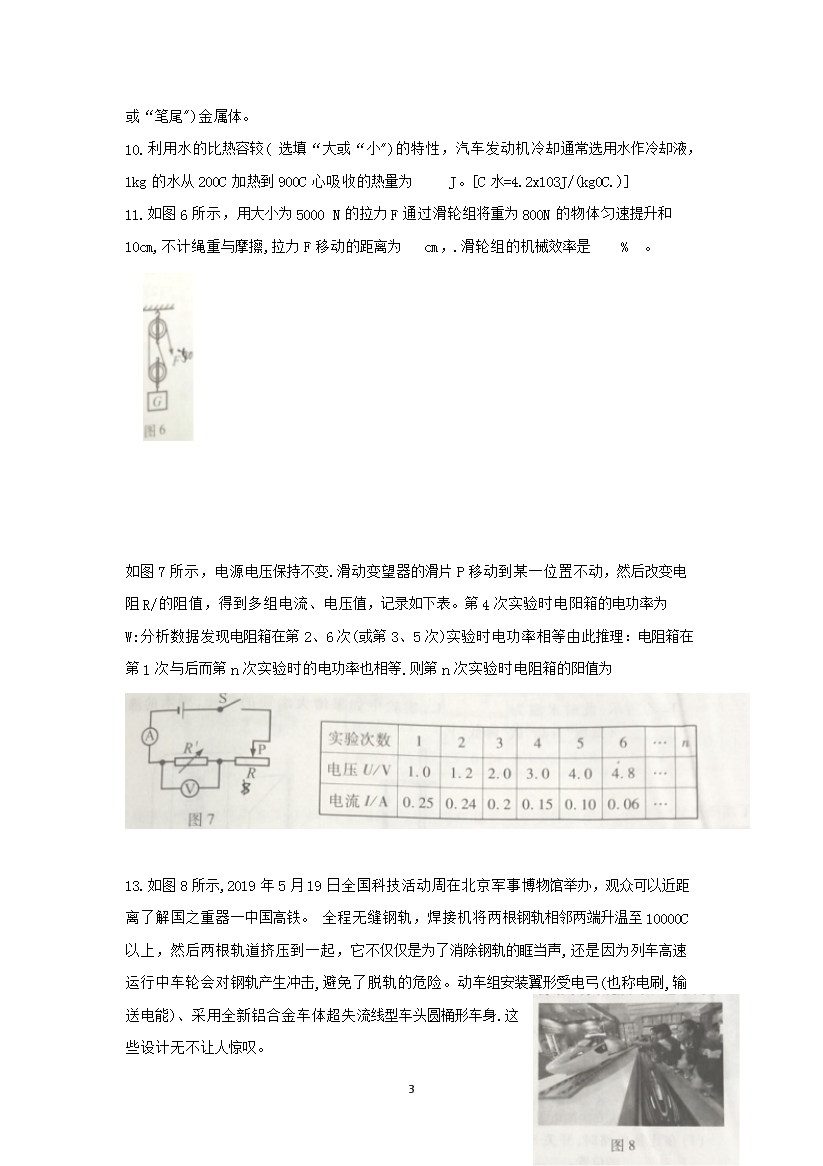 或“笔尾")金属体。
10.利用水的比热容较( 选填“大或“小")的特性，汽车发动机冷却通常选用水作冷却液，
1kg 的水从 200C 加热到 900C 心吸收的热量为 J。[C 水=4.2x103J/(kg0C.)]
11.如图 6 所示，用大小为 5000 N 的拉力 F 通过滑轮组将重为 800N 的物体匀速提升和
10cm,不计绳重与摩擦,拉力 F 移动的距离为 cm，.滑轮组的机械效率是 % 。
F
G
图 6
如图 7 所示，电源电压保持不变.滑动变望器的滑片 P 移动到某一位置不动，然后改变电
阻 R/的阻值，得到多组电流、电压值，记录如下表。第 4 次实验时电阳箱的电功率为
W:分析数据发现电阻箱在第 2、6 次(或第 3、5 次)实验时电功率相等由此推理：电阻箱在
第 1 次与后而第 n 次实验时的电功率也相等.则第 n 次实验时电阻箱的阳值为
S
A
R'
P
R
V
图 7
实验次数 1 2 3 4 5 6 … n
电压 U/V 1.0 1.2 2.0 3.0 4.0 4.8 …
电流 I/A 0.25 0.24 0.2 0.15 0.10 0.06 …
13.如图 8 所示,2019 年 5 月 19 日全国科技活动周在北京军事博物馆举办，观众可以近距
离了解国之重器一中国高铁。 全程无缝钢轨，焊接机将两根钢轨相邻两端升温至 10000C
以上，然后两根轨道挤压到一起，它不仅仅是为了消除钢轨的眶当声,还是因为列车高速
运行中车轮会对钢轨产生冲击,避免了脱轨的危险。动车组安装翼形受电弓(也称电刷,输
送电能)、采用全新铝合金车体超失流线型车头圆桶形车身.这
些设计无不让人惊叹。
图 8
3